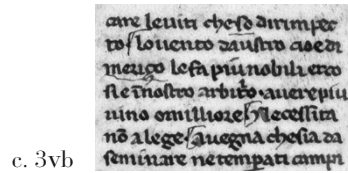 care le viti che so dirimpet
to lo vento daustro cioe di
merigo le fa piu nobili ecco
si e ī nostro arbitro · avere piu
vino o milliore Necessita
nō a lege avegna che sia da
seminare ne temꝑati campi
c. 3vb